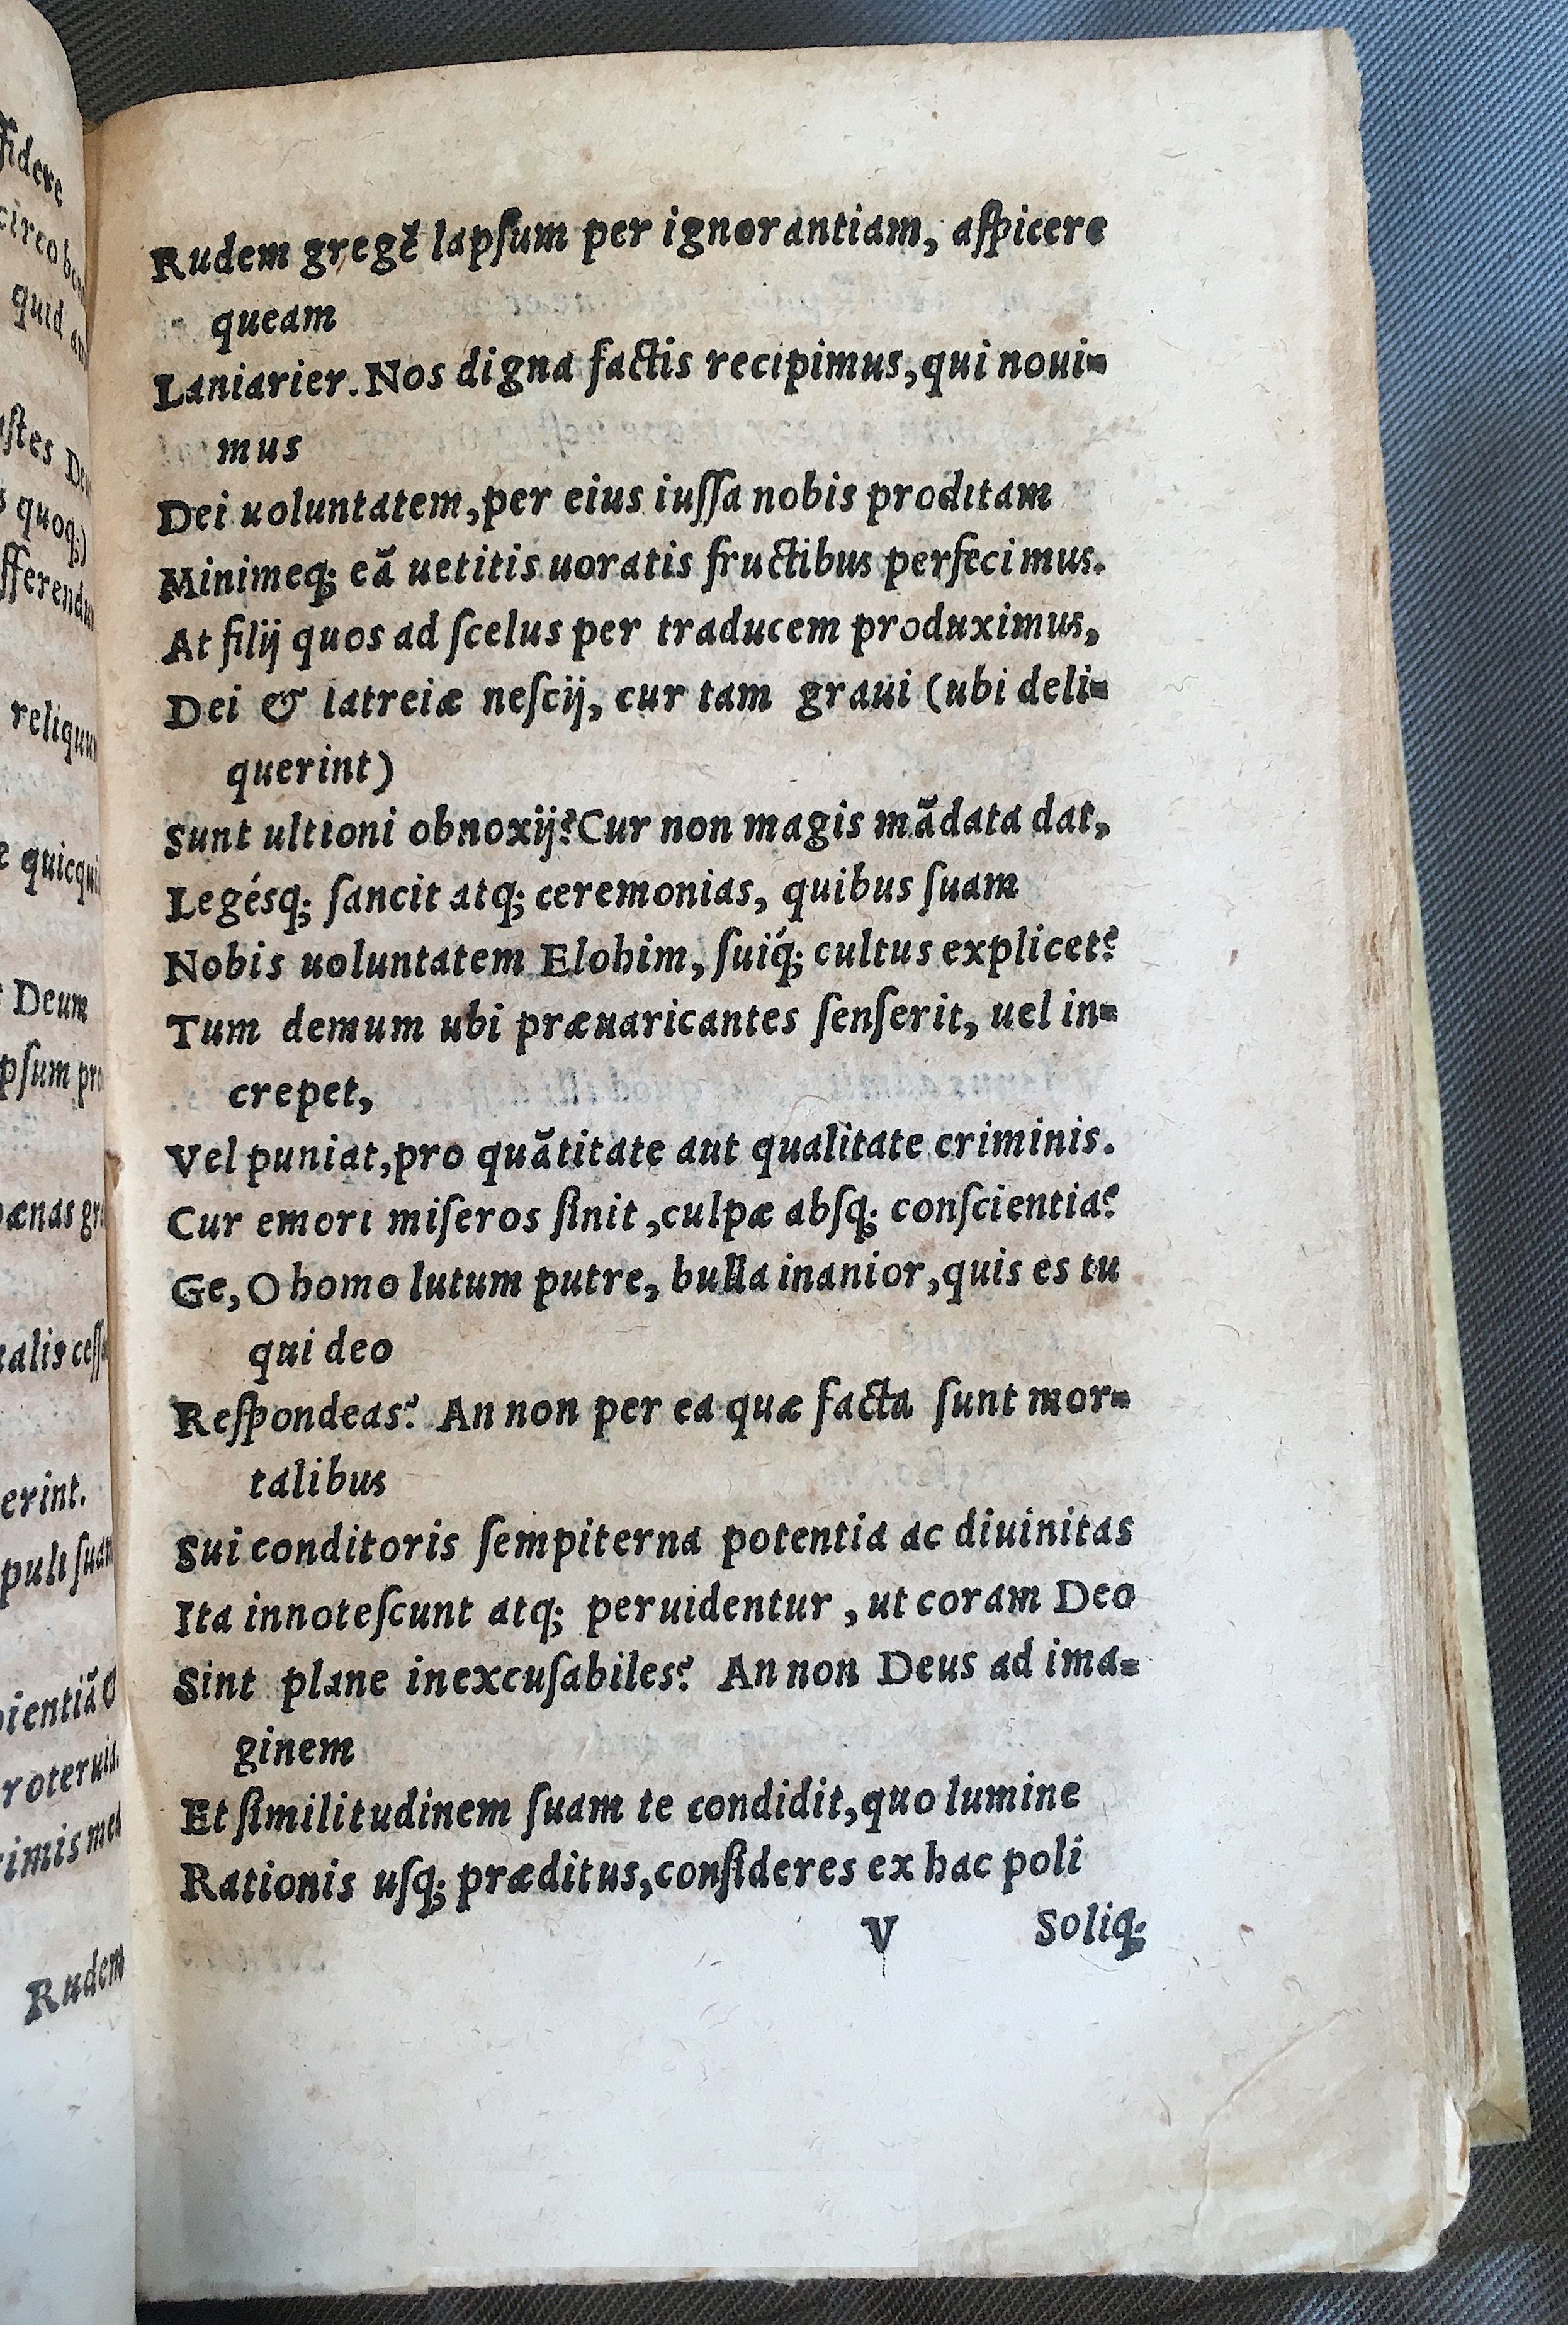 Rudem gregē lapſum per ignorantiam, aſpicere
queam
Laniarier. Nos digna factis recipimus, qui noui=
mus
Dei uoluntatem, per eius iuſſa nobis proditam
Minimeq; eā uetitis uoratis fructibus perfecimus.
At filij quos ad ſcelus per traducem produximus,
Dei & latreiæ neſcij, cur tam graui (ubi deli=
querint)
Sunt ultioni obnoxij? Cur non magis mādata dat,
Legésq; ſancit atq; ceremonias, quibus ſuam
Nobis uoluntatem Elohim, ſuíq; cultus explicet?
Tum demum ubi præuaricantes ſenſerit, uel in=
crepet,
Vel puniat, pro quātitate aut qualitate criminis.
Cur emori miſeros ſinit, culpæ absq; conſcientia?
Ge, O homo lutum putre, bulla inanior, quis es tu
qui deo
Reſpondeas? An non per ea quæ facta ſunt mor=
talibus
Sui conditoris ſempiterna potentia ac diuinitas
Ita innoteſcunt atq; peruidentur, ut coram Deo
Sint plane inexcuſabiles? An non Deus ad ima=
ginem
Et ſimilitudinem ſuam te condidit, quo lumine
Rationis uſq; præditus, conſideres ex hac poli
V Soliq;
fidere
circo
quid
quoq;)
Deum
erint.
Rudem